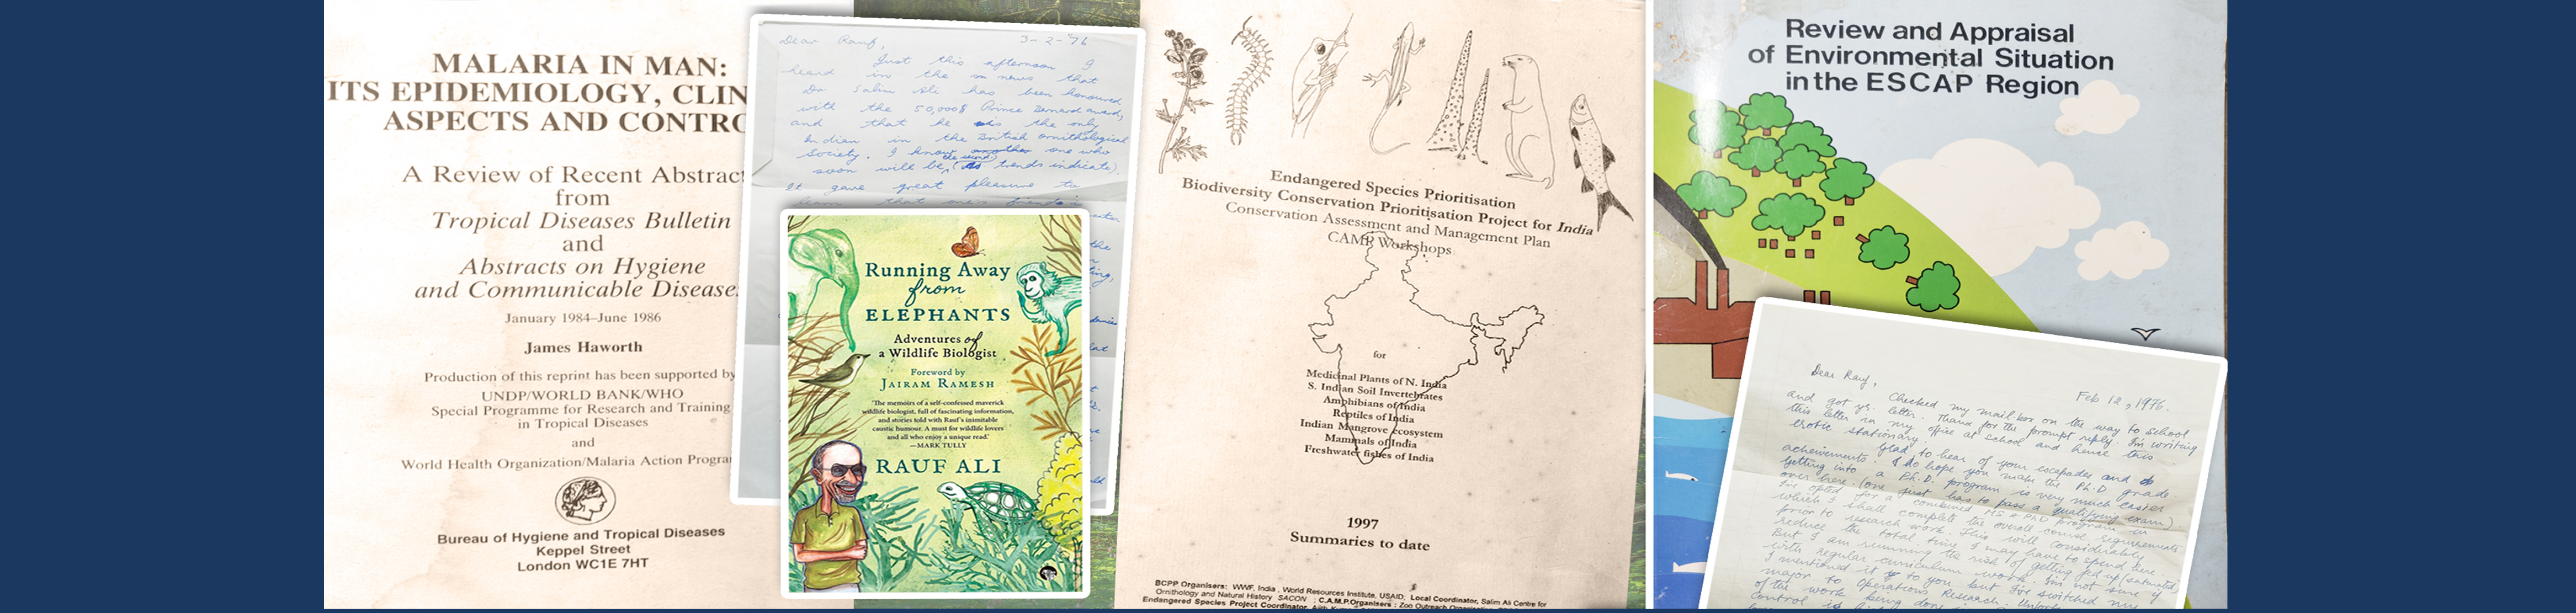 MALARIA IN MAN:
ITS EPIDEMIOLOGY, CLIN
ASPECTS AND CONTRO
A Review of Recent Abstract
from
Tropical Diseases Bulletin
and
Abstracts on Hygiene
and Communicable Disease
January 1984–June 1986
James Haworth
Production of this reprint has been supported by
UNDP/WORLD BANK/WHO
Special Programme for Research and Training
in Tropical Diseases
and
World Health Organization/Malaria Action Progra
Bureau of Hygiene and Tropical Diseases
Keppel Street
London WC1E 7HT
Dear Rauf,
3-2-'76
Just this afternoon I
heard in the news that
Dr Salim Ali has been honoured
with the 50,000$ Prince Bernard award,
and that he is the only
Indian in the British Ornithological
Society. I know one who
soon will be (the trends indicate).
It gave great pleasure to
learn that one's friends
Running Away
from
ELEPHANTS
Adventures of
a Wildlife Biologist
Foreword by
JAIRAM RAMESH
'The memoirs of a self-confessed maverick
wildlife biologist, full of fascinating information,
and stories told with Rauf's inimitable
caustic humour. A must for wildlife lovers
and all who enjoy a unique read.'
—MARK TULLY
RAUF ALI
Endangered Species Prioritisation
Biodiversity Conservation Prioritisation Project for India
Conservation Assessment and Management Plan
CAMP Workshops
for
Medicinal Plants of N. India
S. Indian Soil Invertebrates
Amphibians of India
Reptiles of India
Indian Mangrove ecosystem
Mammals of India
Freshwater fishes of India
1997
Summaries to date
BCPP Organisers: WWF, India, World Resources Institute, USAID; Local Coordinator, Salim Ali Centre for
Ornithology and Natural History SACON ; C.A.M.P.Organisers : Zoo Outreach
Endangered Species Project Coordinator,
Review and Appraisal
of Environmental Situation
in the ESCAP Region
Dear Rauf,
Feb 12, 1976.
Checked my mail-box on the way to school
and got yr. letter. Thanx for the prompt reply. I'm writing
this letter in my office at school and hence this
exotic stationary.
Glad to hear of your escapades and
achievements. I do hope you make the Ph.D. grade.
Getting into a Ph.D. program is very much easier
over here. (one just has to pass a qualifying exam)
I've opted for a combined MS & PhD program in
which I shall complete the overall course requirements
prior to research work. This will considerably
reduce the total time I may have to spend here.
But I am running the risk of getting fed up (saturated)
with regular curriculum work. I'm not sure if
I mentioned it to you but I've switched my
major to Operations Research.
of the work being done in
control is